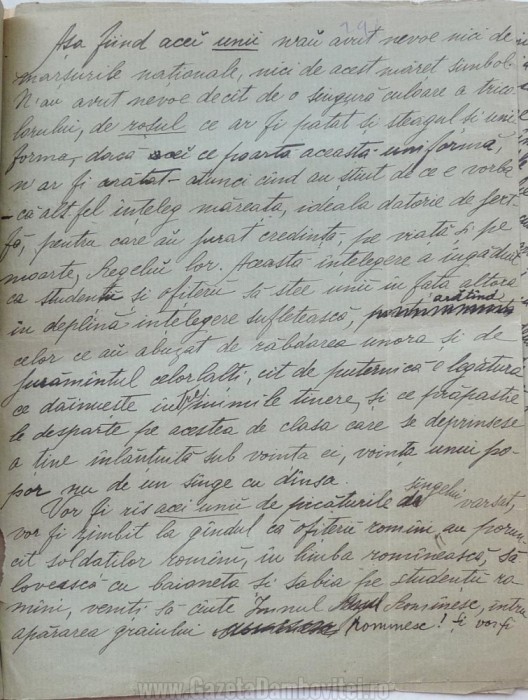 Așa fiind acei unii n'au avut nevoe nici de
marșurile naționale, nici de acest măreț simbol.
N'au avut nevoe decit de o singură culoare a trico
lorului, de roșul ce ar fi pătat și steagul și uni
forma, dacă acei ce poartă această uniformă,
n'ar fi arătat - atunci cind au știut de ce e vorba
- că altfel înțeleg măreața, ideala datorie de jert
fă, pentru care au jurat credință, pe viață și pe
moarte, Regelui lor. Această înțelegere a îngăduit
ca studenții și ofițerii să stee unii în fața altora
în deplină înțelegere sufletească, arătind
celor ce au abuzat de răbdarea unora și de
jurămintul celorlalți, cit de puternică e legătura
ce dăinuește între inimile tinere, și ce prăpastie
le desparte pe acestea de clasa care se deprinsese
a ține inlănțuită sub voința ei, voința unui po-
por nu de un singe cu dinsa.
Vor fi ris acei unii de picăturile singelui vărsat,
vor fi zimbit la gindul că ofițerii romini au porun
cit soldaților romini, în limba rominească, să
lovească cu baioneta și sabia pe studenții ro
mini, veniți să cinte Imnul Rominesc, intru
apărarea graiului Rominesc! Și vor fi
www.GazetaDambovitei.ro